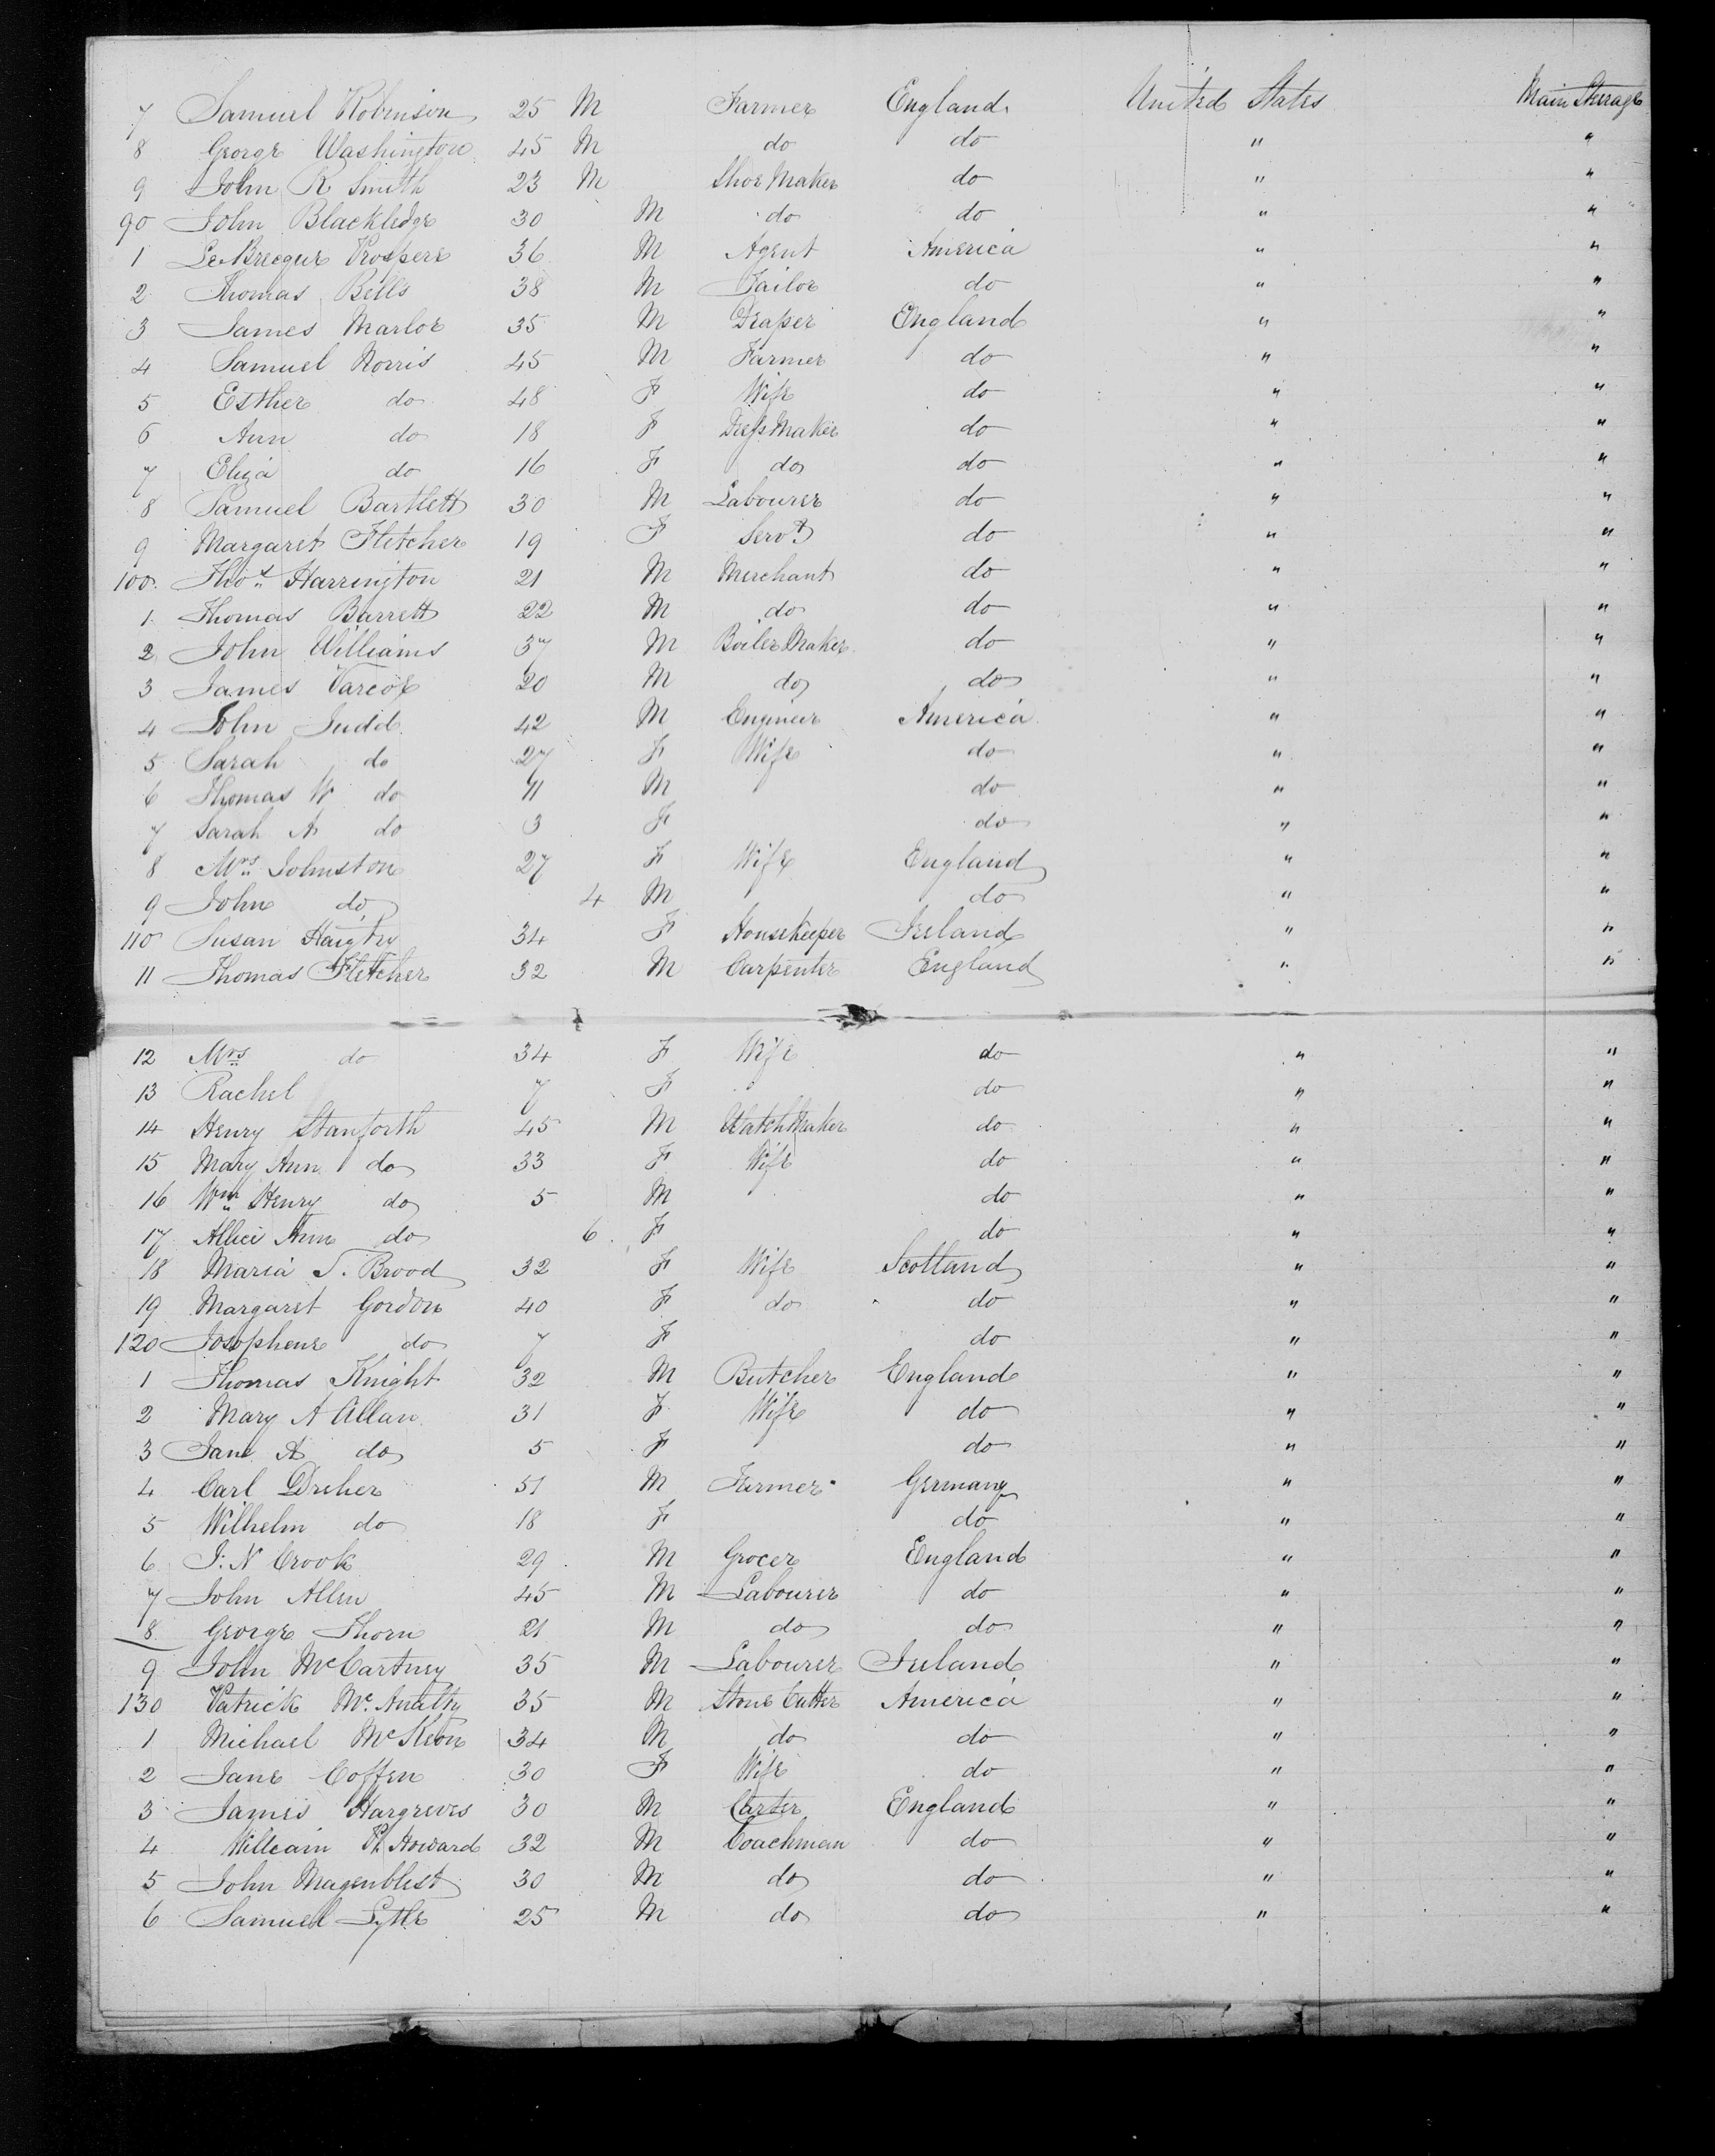 7 Samuel Robinson 25 M Farmer England United States Main Sterage
8 George Washington 45 M do do " "
9 John R Smith 23 M Shoe Maker do " "
90 John Blackledge 30 M do do " "
1 Le Brecque Prospere 36 M Agent America " "
2 Thomas Bells 38 M Tailor do " "
3 James Marlor 35 M Draper England " "
4 Samuel Norris 45 M Farmer do " "
5 Esther do 48 F Wife do " "
6 Ann do 18 F Dress Maker do " "
7 Eliza do 16 F do do " "
8 Samuel Bartlett 30 M Labourer do " "
9 Margaret Fletcher 19 F Servt do " "
100 Thos Harrington 21 M Merchant do " "
1 Thomas Barrett 22 M do do " "
2 John Williams 37 M Boiler Maker do " "
3 James Varcoe 20 M do do " "
4 John Judd 42 M Engineer America " "
5 Sarah do 27 F Wife do " "
6 Thomas W do 11 M do " "
7 Sarah A do 3 F do " "
8 Mrs Johnston 27 F Wife England " "
9 John do 4 M do " "
110 Susan Haigty 34 F Housekeeper Ireland " "
11 Thomas Fletcher 32 M Carpenter England " "
12 Mrs do 34 F Wife do " "
13 Rachel 7 F do " "
14 Henry Stanforth 45 M Watch Maker do " "
15 Mary Ann do 33 F Wife do " "
16 Wm Henry do 5 M do " "
17 Allice Ann do 6 F do " "
18 Maria S. Brood 32 F Wife Scotland " "
19 Margaret Gordon 40 F do do " "
120 Josophene do 7 F do " "
1 Thomas Knight 32 M Butcher England " "
2 Mary A Allan 31 F Wife do " "
3 Jane A do 5 F do " "
4 Carl Dreher 51 M Farmer Germany " "
5 Wilhelm do 18 F do " "
6 J. N Crook 29 M Grocer England " "
7 John Allen 45 M Labourer do " "
8 George Thorn 21 M do do " "
9 John McCartney 35 M Labourer Ireland " "
130 Patrick Mc 35 M Stone Cutter America " "
1 Michael McKeon 34 M do do " "
2 Jane Coffen 30 F Wife do " "
3 James Hargreves 30 M Carter England " "
4 William H Howard 32 M Coachman do " "
5 John Magenblist 30 M do do " "
6 Samuel Lytle 25 M do do " "